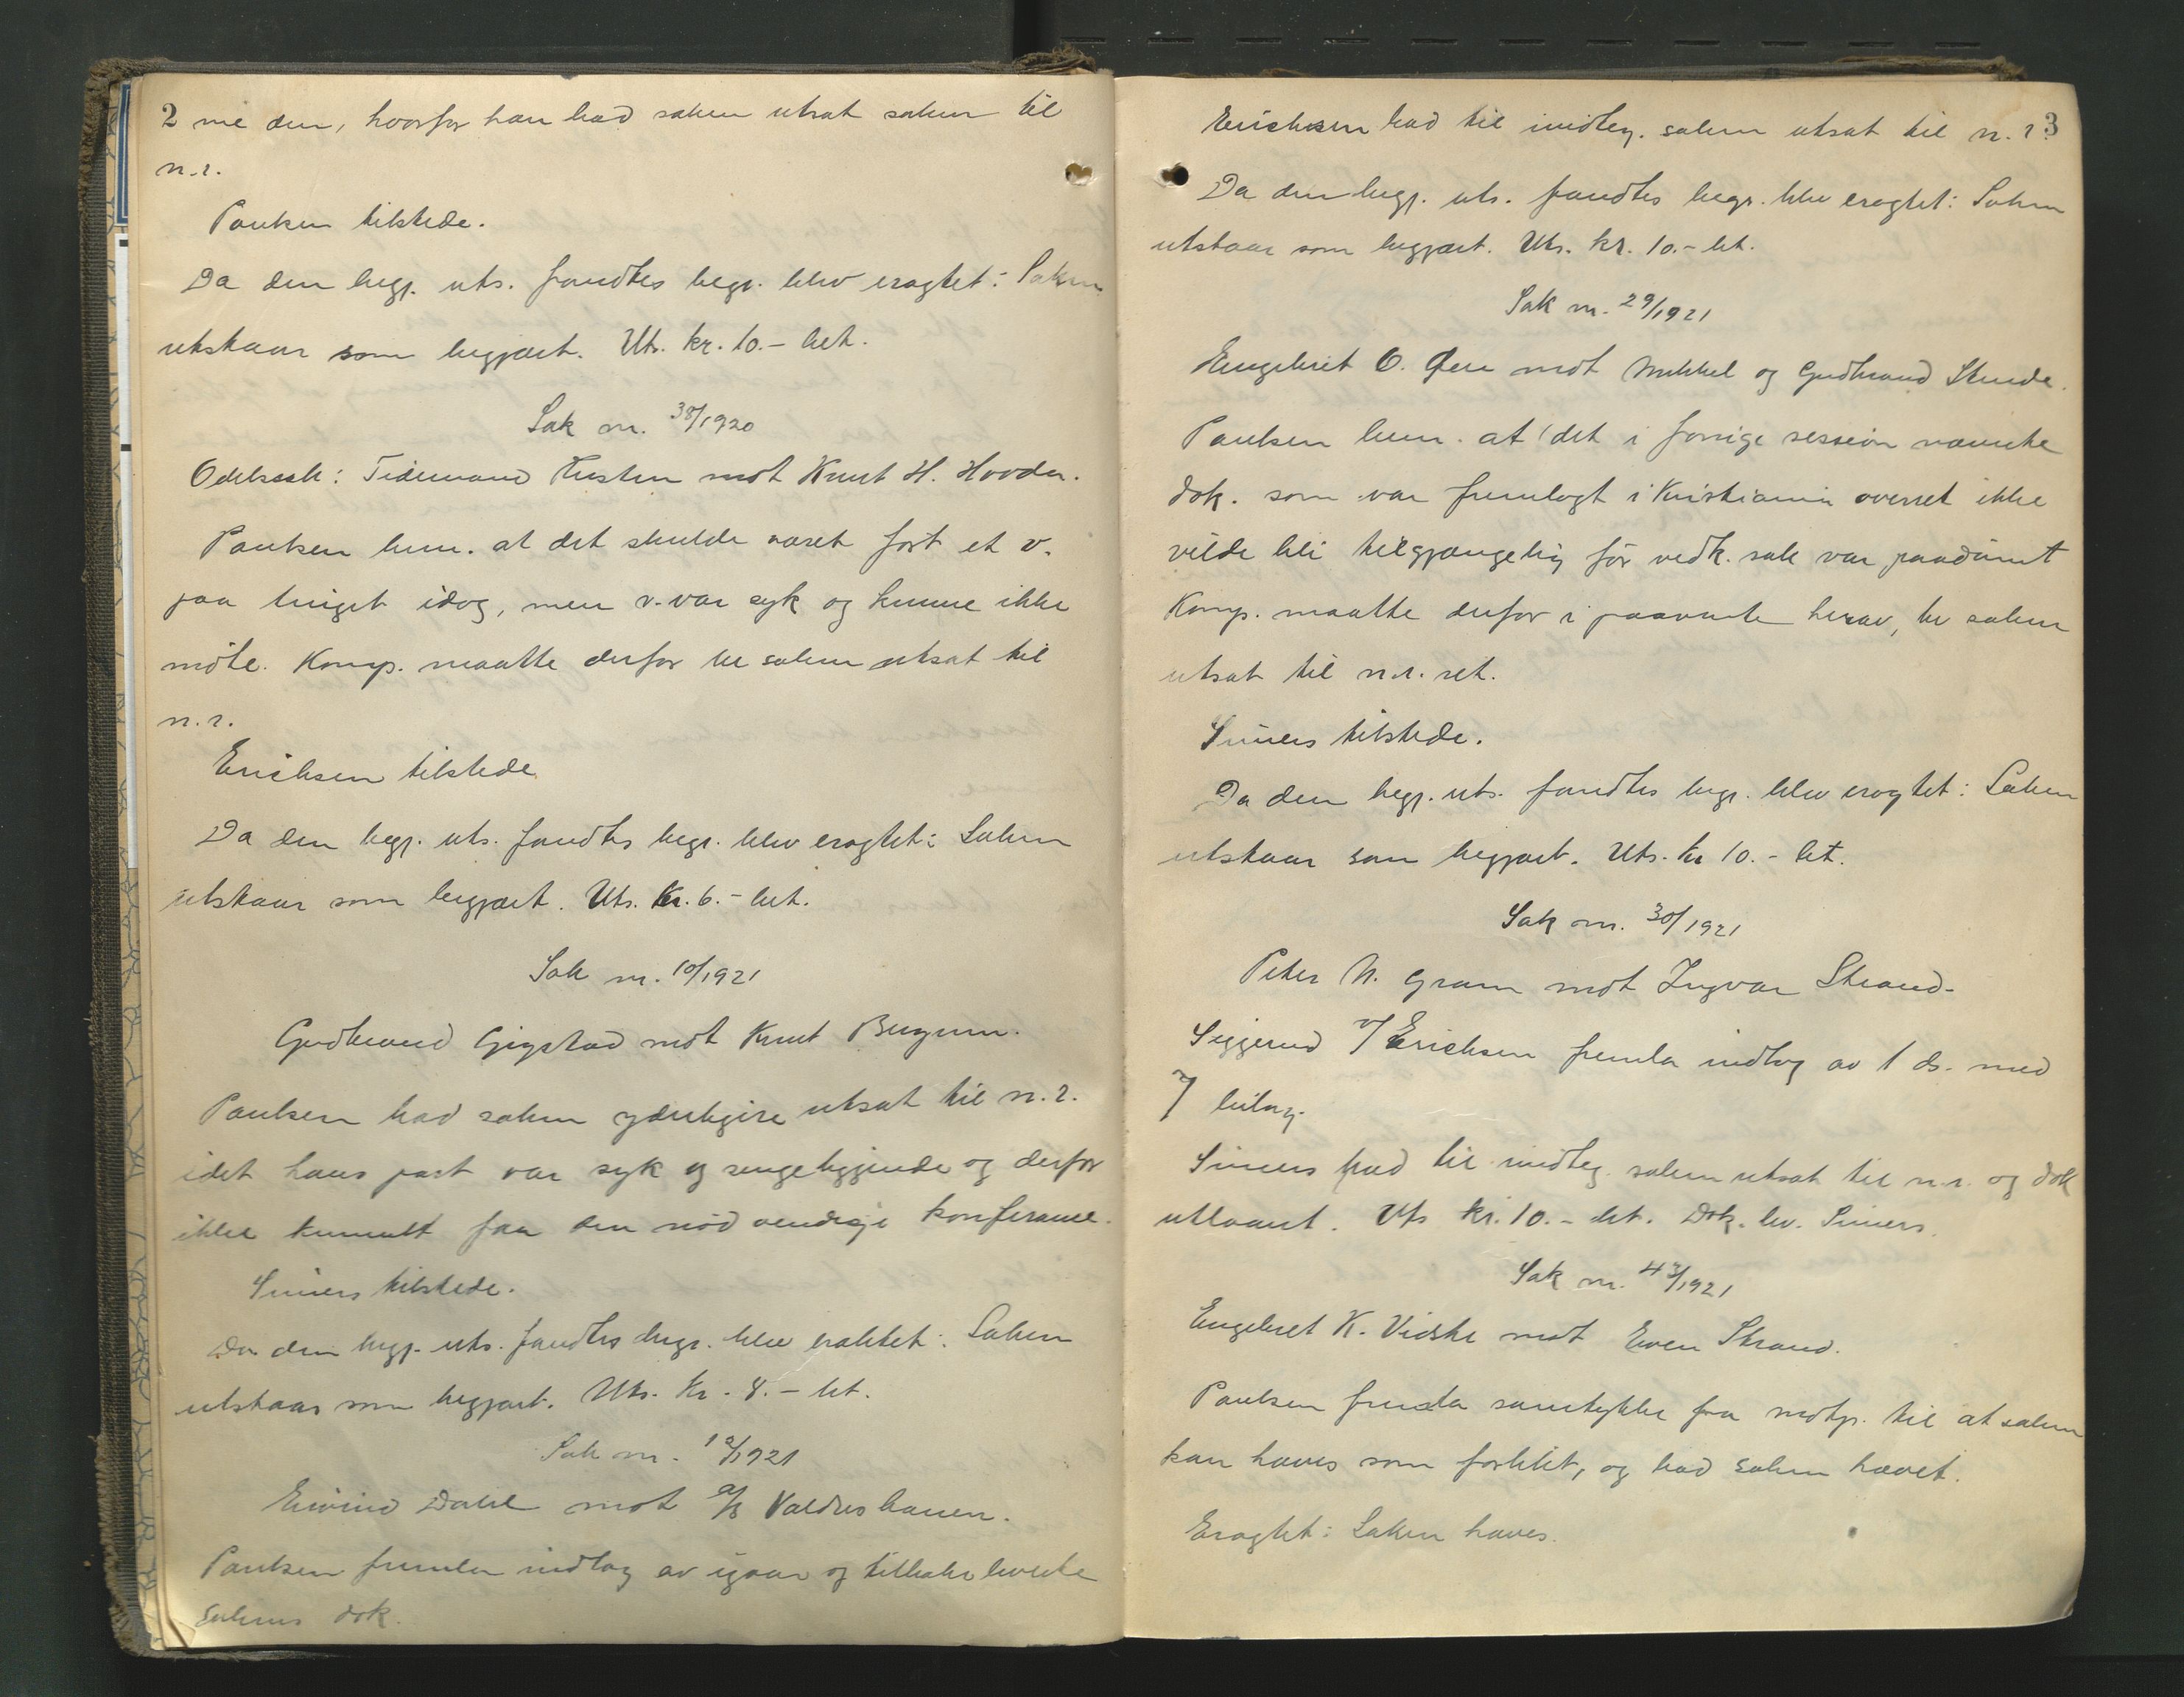 2 me den, hvorfor han bad saken utsat saken til
n.r.
Paulsen tilstede.
Da den begj. uts. fandtes begr. blev eragtet: Saken
utstaar som begjært. Uts. kr. 10.- bet.
Sak nr. 38/1920
Odelssak: Tidemand Kusten mot Knut H. Hovda.
Paulsen bem. at det skulde været ført et v.
paa tinget idag, men v. var syk og kunne ikke
møte. Komp. maatte derfor be saken utsat til
n.r.
Erichsen tilstede.
Da den begj. uts. fandtes begr. blev eragtet: Saken
utstaar som begjært. Uts. kr. 6.- bet.
Sak nr. 10/1921
Gudbrand Gigstad mot Knut Bergum.
Paulsen bad saken yderligere utsat til n.r.
idet hans part var syk og sengeliggende og derfor
ikke kunnet faa den nødvendige konferanse.
Siniers tilstede.
Da den begj. uts. fandtes begr. blev eraktet: Saken
utstaar som begjært. Uts. kr. 8.- bet.
Sak nr. 12/1921
Eivind Dahl mot A/S Valdresbanen.
Paulsen fremla indlæg av igaar og tilbakeleverte
sakens dok.
3
Erichsen bad til imidleg. saken utsat til n.r.
Da den begj. uts. fandtes begr. blev eragtet: Saken
utstaar som begjært. Uts. kr. 10.- bet.
Sak nr. 29/1921
Engebret O. Øen mot Mikkel og Gudbrand Skrede.
Paulsen bem. at det i forrige session nævnte
dok. som var fremlagt i Kristiania overret ikke
vilde bli tilgjængelig før vedk. sak var paadømt
Komp. maatte derfor i paavente herav, be saken
utsat til n.r. ret.
Siniers tilstede.
Da den begj. uts. fandtes begr. blev eragtet: Saken
utstaar som begjært. Uts. kr 10.- bet.
Sak nr. 30/1921
Peter N. Gram mot Ingvar Strand.
Siggerud v/ Erichsen fremla indlæg av 1 ds. med
7 bilag.
Siniers bad til imidleg. saken utsat til n.r. og dok
utlaant. Uts kr. 10.- bet. Dok. lev. Siniers.
Sak nr. 43/1921
Engebret K. Vidste mot Even Strand.
Paulsen fremla samtykke fra motp. til at saken
kan hæves som forlikt, og bad saken hævet.
Eragtet: Saken hæves.